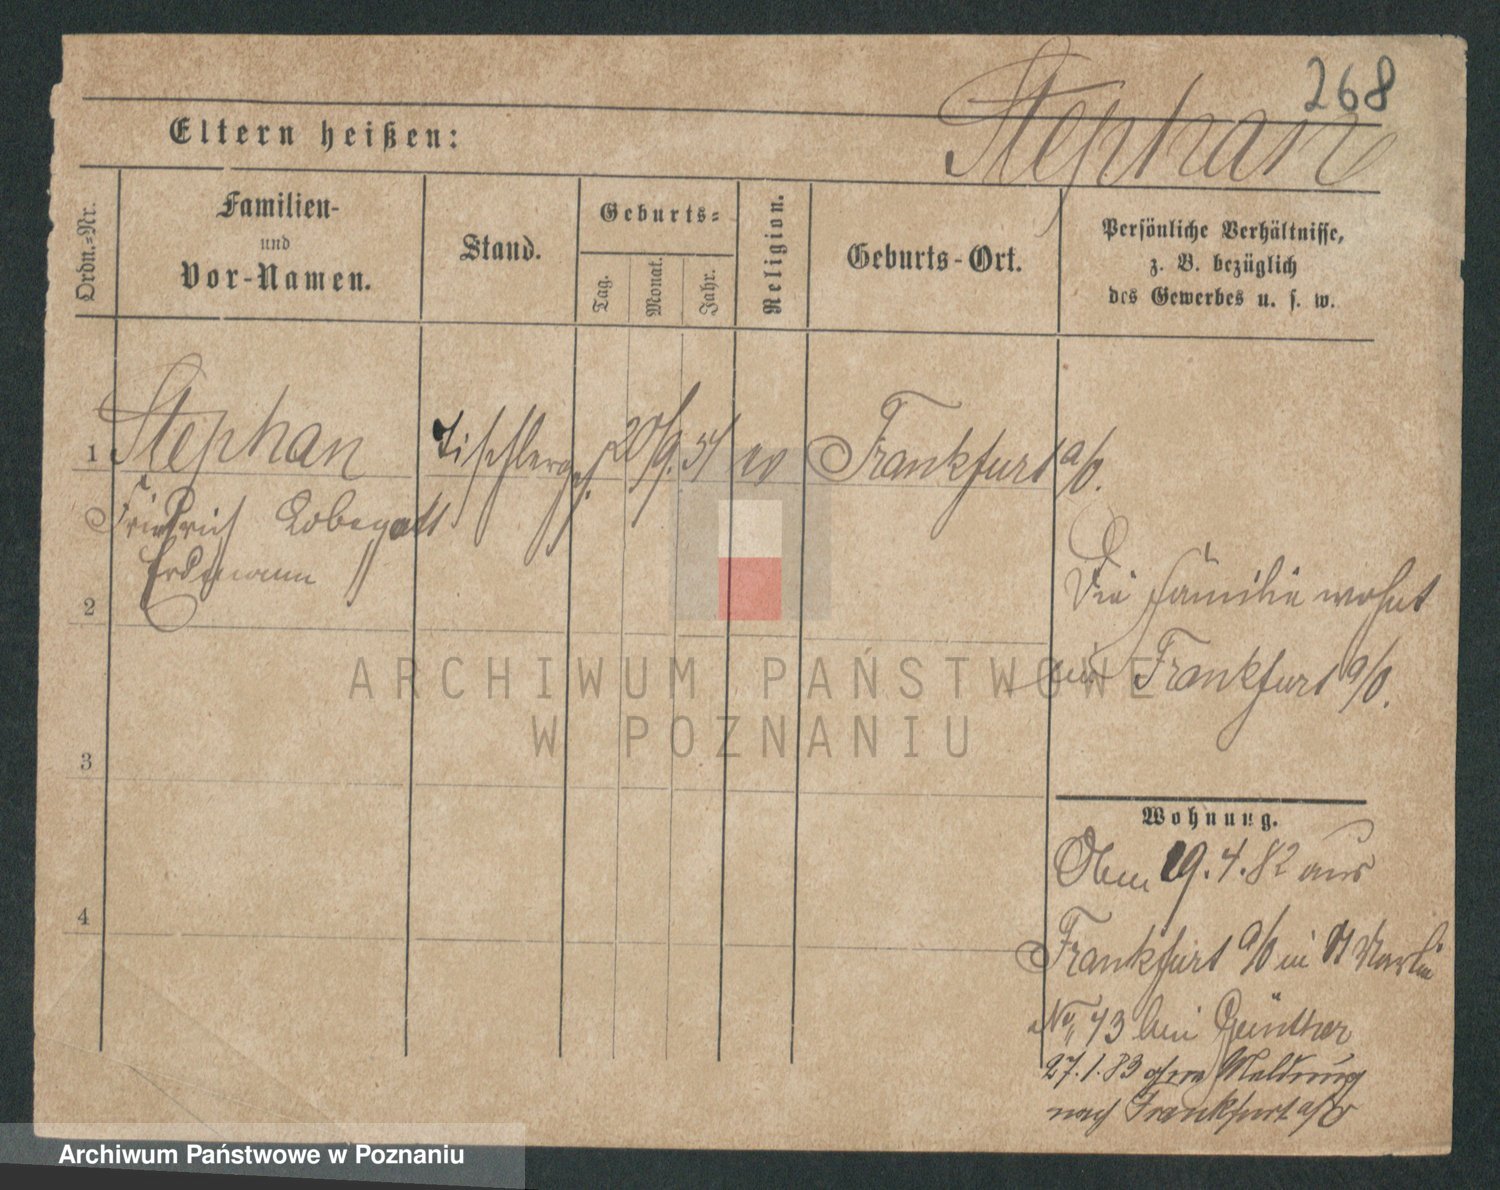 268
Stephan
Eltern heißen:
Ordn.-Nr.
Familien-
und
Vor-Namen.
Stand.
Geburts-
Tag.
Monat.
Jahr.
Religion.
Geburts-Ort.
Persönliche Verhältnisse,
z. B. bezüglich
des Gewerbes u. s. w.
1 Stephan Tischlerges. 20/9. 51 ev Frankfurt a/O.
Friedrich Lobegott
Erdmann
2
Die Familie wohnt
in Frankfurt a/O.
3
4
Wohnung.
19.4.82 aus
Frankfurt a/O in St Martin
No 73 bei Günther
27.1.83 ohne Meldung
nach Frankfurt a/O
ARCHIWUM PAŃSTWOWE
W POZNANIU
Archiwum Państwowe w Poznaniu